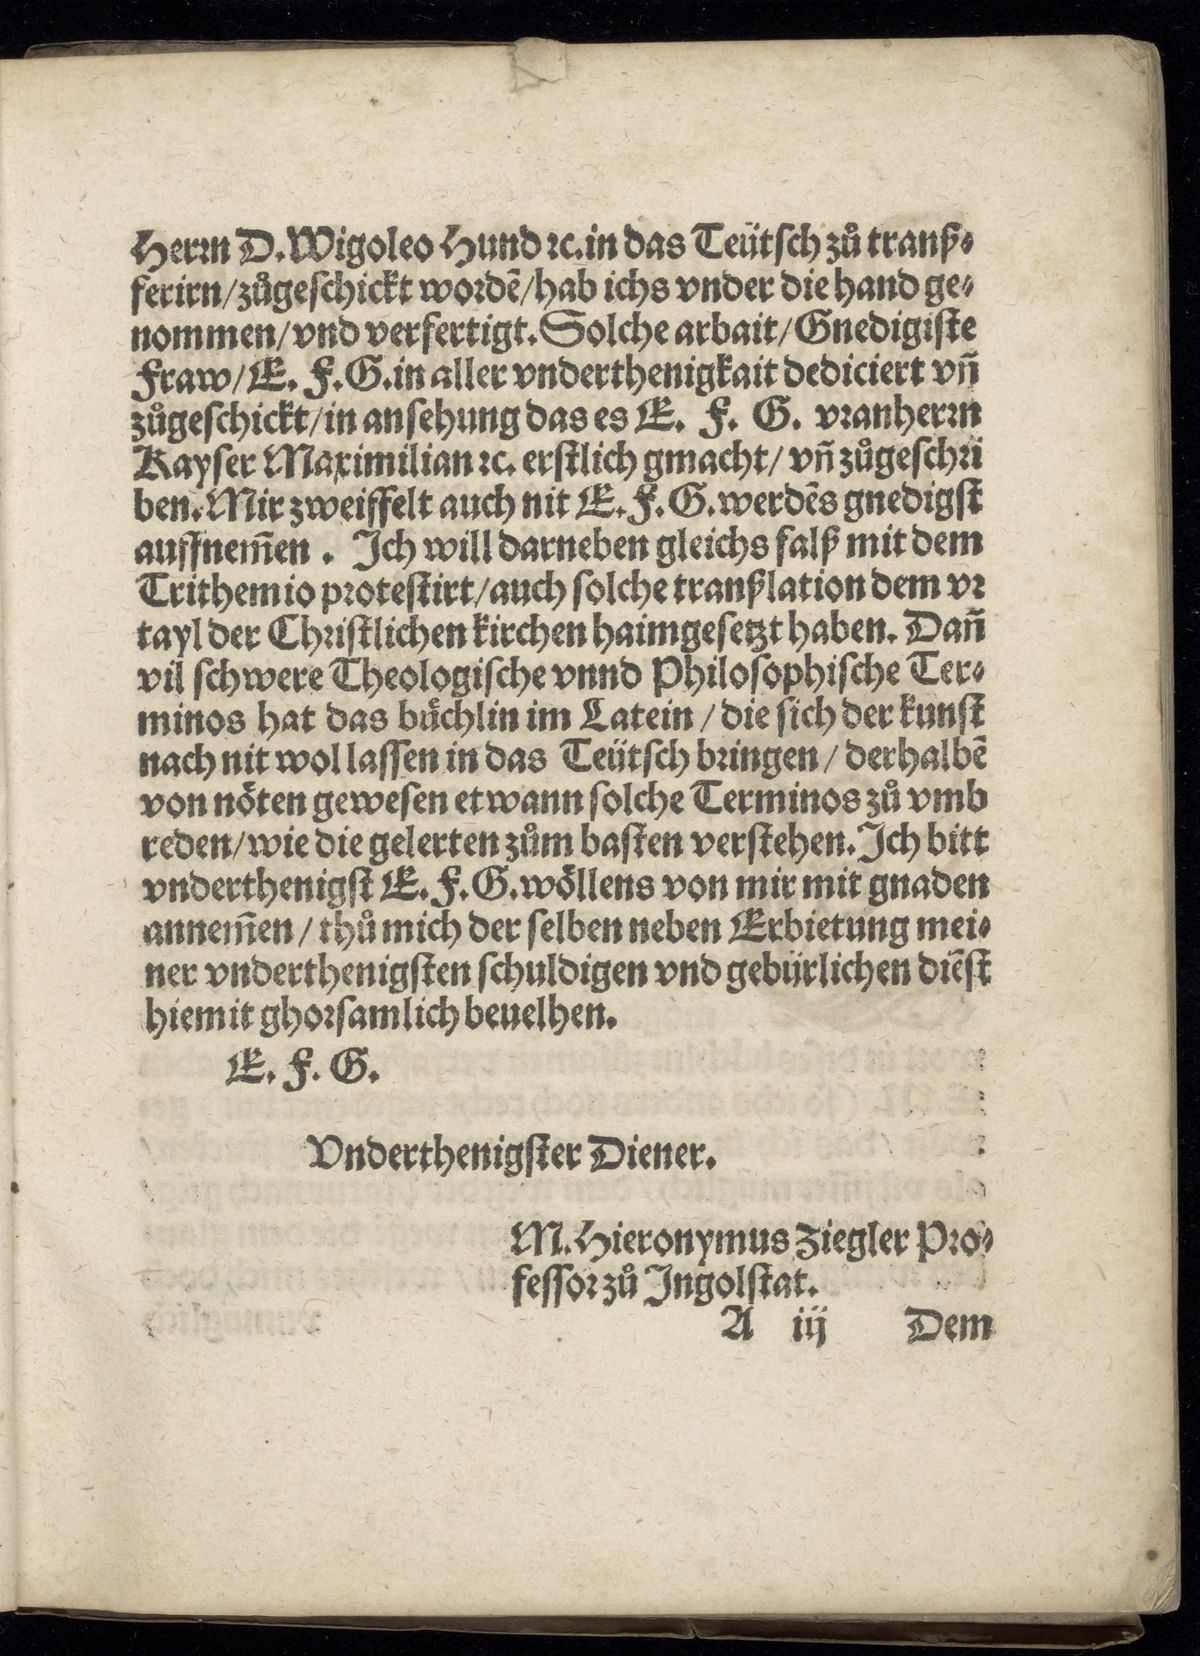 Herrn D. Wigoleo Hund ꝛc. in das Teütsch zů tranß⸗
ferirn/zůgeschickt wordē/hab ichs vnder die hand ge⸗
nommen/vnd verfertigt. Solche arbait/Gnedigiste
Fraw/E. F. G. in aller vnderthenigkait dediciert vñ
zůgeschickt/in ansehung das es E. F. G. vranherrn
Kayser Maximilian ꝛc. erstlich gmacht/vñ zůgeschri
ben. Mir zweiffelt auch nit E. F. G. werdēs gnedigst
auffnem̄en. Ich will darneben gleichs falß mit dem
Trithemio protestirt/auch solche tranßlation dem vr
tayl der Christlichen kirchen haimgesetzt haben. Dañ
vil schwere Theologische vnnd Philosophische Ter⸗
minos hat das bůchlin im Latein/die sich der kunst
nach nit wol lassen in das Teütsch bringen/derhalbē
von nöten gewesen etwann solche Terminos zů vmb
reden/wie die gelerten zům basten verstehen. Ich bitt
vnderthenigst E. F. G. wöllens von mir mit gnaden
annem̄en/thů mich der selben neben Erbietung mei⸗
ner vnderthenigsten schuldigen vnd gebürlichen diēst
hiemit ghorsamlich beuelhen.
E. F. G.
Vnderthenigster Diener.
M. Hieronymus Ziegler Pro⸗
fessor zů Ingolstat.
A iij Dem